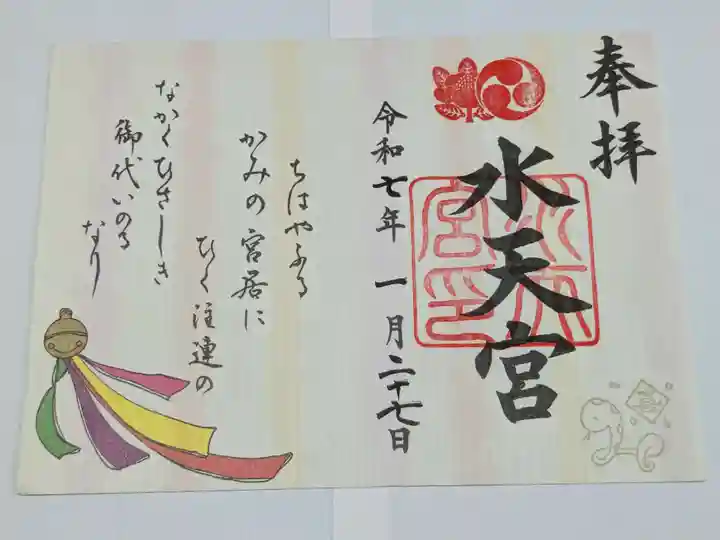 奉拝
水天宮
令和七年 一月二十七日
ちはやふる
かみの宮居に
ひく注連の
なかくひさしき
御代いのる
なり